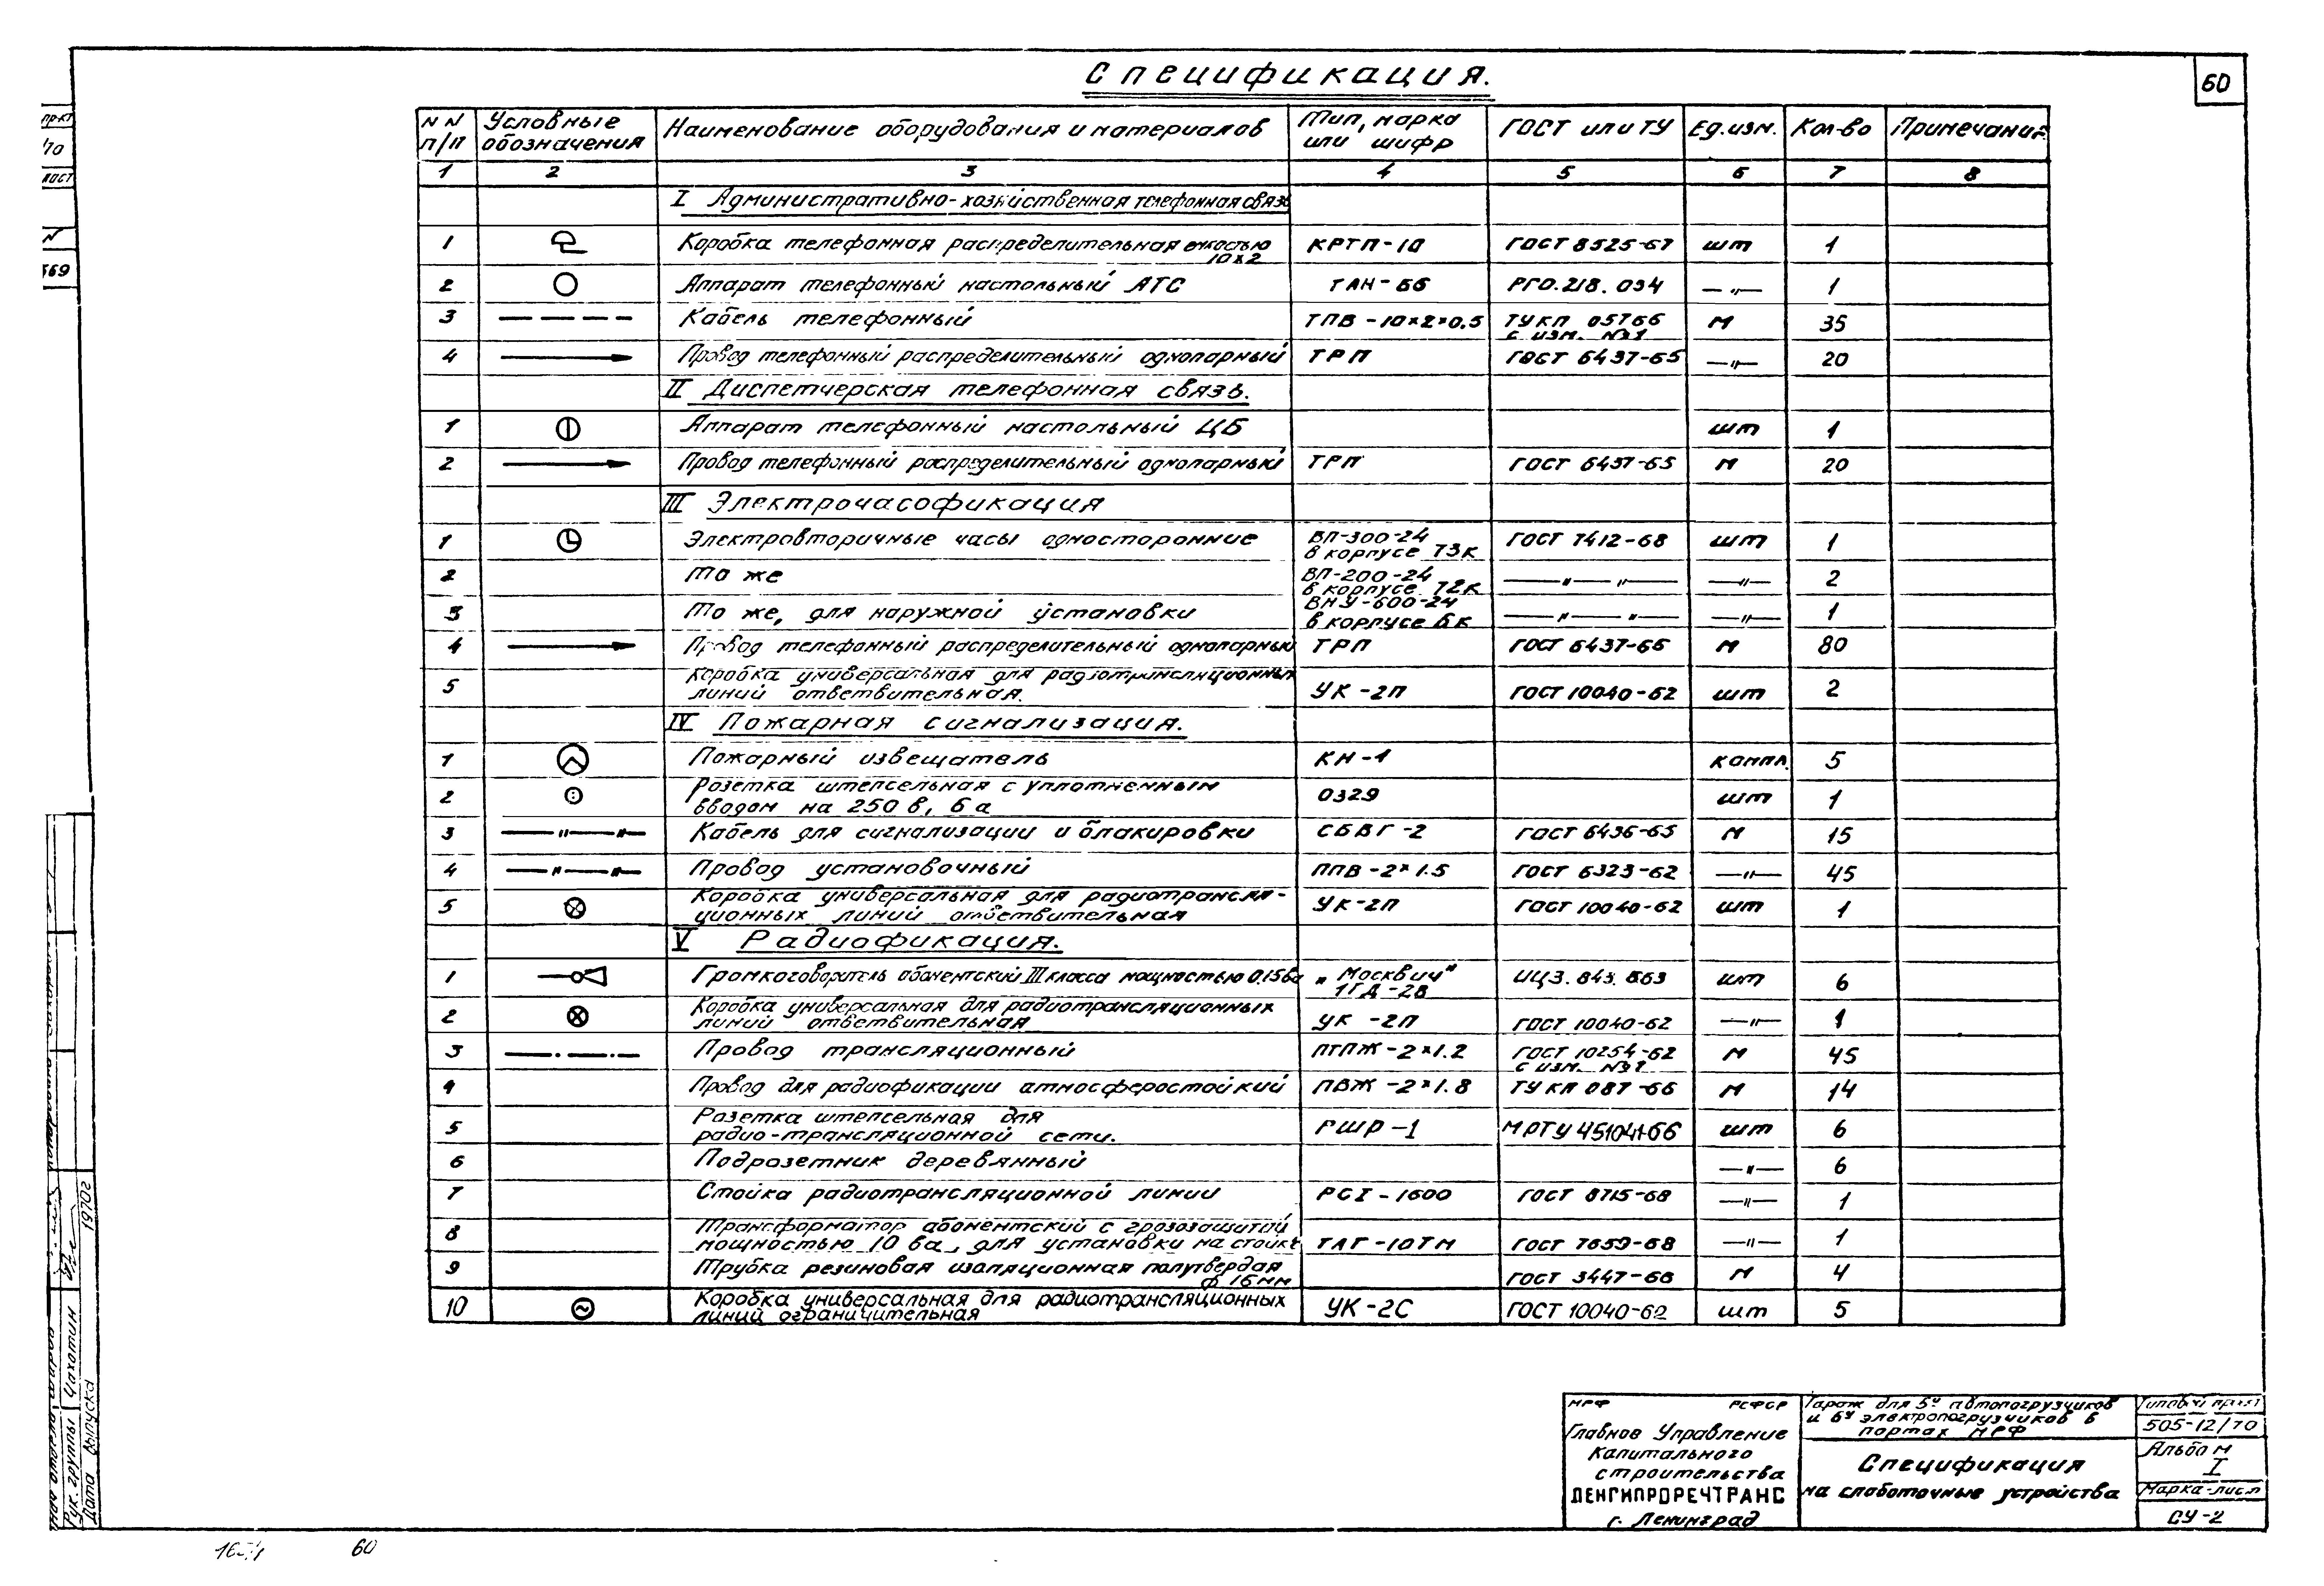 Спецификация.
60
N N п/п Условные обозначения Наименование оборудования и материалов Тип, марка или шифр ГОСТ или ТУ Ед.изм. Кол-во Примечания
1 2 3 4 5 6 7 8
I Административно-хозяйственная телефонная связь
1 Коробка телефонная распределительная емкостью 10×2 КРТП-10 ГОСТ 8525-67 шт 1
2 Аппарат телефонный настольный АТС ТАН-66 РГО.218.034 —"— 1
3 Кабель телефонный ТПВ-10×2×0.5 ТУКП 05766 с изм. №1 м 35
4 Провод телефонный распределительный однопарный ТРП ГОСТ 6437-65 —"— 20
II Диспетчерская телефонная связь.
1 Аппарат телефонный настольный ЦБ шт 1
2 Провод телефонный распределительный однопарный ТРП ГОСТ 6437-65 м 20
III Электрочасофикация
1 Электровторичные часы односторонние ВП-300-24 в корпусе Т3К ГОСТ 7412-68 шт 1
2 То же ВП-200-24 в корпусе Т2К —"—"— —"— 2
3 То же, для наружной установки ВНУ-600-24 в корпусе 6К —"—"— —"— 1
4 Провод телефонный распределительный однопарный ТРП ГОСТ 6437-65 м 80
5 Коробка универсальная для радиотрансляционных линий ответвительная. УК-2П ГОСТ 10040-62 шт 2
IV Пожарная сигнализация.
1 Пожарный извещатель КН-1 компл. 5
2 Розетка штепсельная с уплотненным вводом на 250 в, 6 а 0329 шт 1
3 Кабель для сигнализации и блакировки СБВГ-2 ГОСТ 6436-65 м 15
4 Провод установочный ППВ-2×1.5 ГОСТ 6323-62 —"— 45
5 Коробка универсальная для радиотрансляционных линий ответвительная УК-2П ГОСТ 10040-62 шт 1
V Радиофикация.
1 Громкоговоритель абонентский III класса мощностью 0.15ва „Москвич" 1ГД-28 ИЦ3.843.663 шт 6
2 Коробка универсальная для радиотрансляционных линий ответвительная УК-2П ГОСТ 10040-62 —"— 1
3 Провод трансляционный ПТПЖ-2×1.2 ГОСТ 10254-62 с изм. №1 м 45
4 Провод для радиофикации атмосферостойкий ПВЖ-2×1.8 ТУ КП 087-66 м 14
5 Розетка штепсельная для радио-трансляционной сети. РШР-1 МРТУ 451041-66 шт 6
6 Подрозетник деревянный —"— 6
7 Стойка радиотрансляционной линии РСI-1600 ГОСТ 8715-68 —"— 1
8 Трансформатор абонентский с грозозащитой мощностью 10 ва, для установки на стойке ТАГ-10ТМ ГОСТ 7659-68 —"— 1
9 Трубка резиновая изоляционная полутвердая ф 16мм ГОСТ 3447-68 м 4
10 Коробка универсальная для радиотрансляционных линий ограничительная УК-2С ГОСТ 10040-62 шт 5
МРФ РСФСР
Главное Управление
Капитального
строительства
ЛЕНГИПРОРЕЧТРАНС
г. Ленинград
Гараж для 5и автопогрузчиков
и 6и электропогрузчиков в
портах МРФ
Спецификация
на слаботочные устройства
Типовой проект
505-12/70
Альбом
I
Марка-лист
СУ-2
Рук. группы Чахотин
Дата выпуска 1970г
60